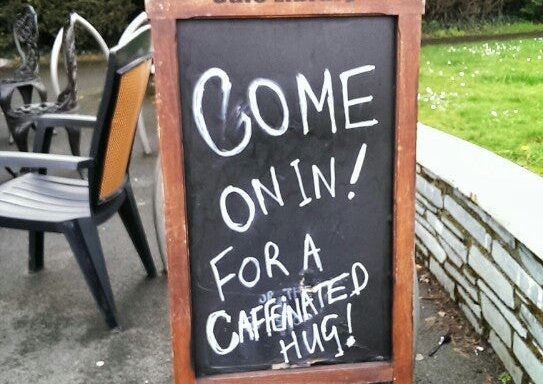 COME
ON IN!
FOR A
CAFFEINATED
HUG!